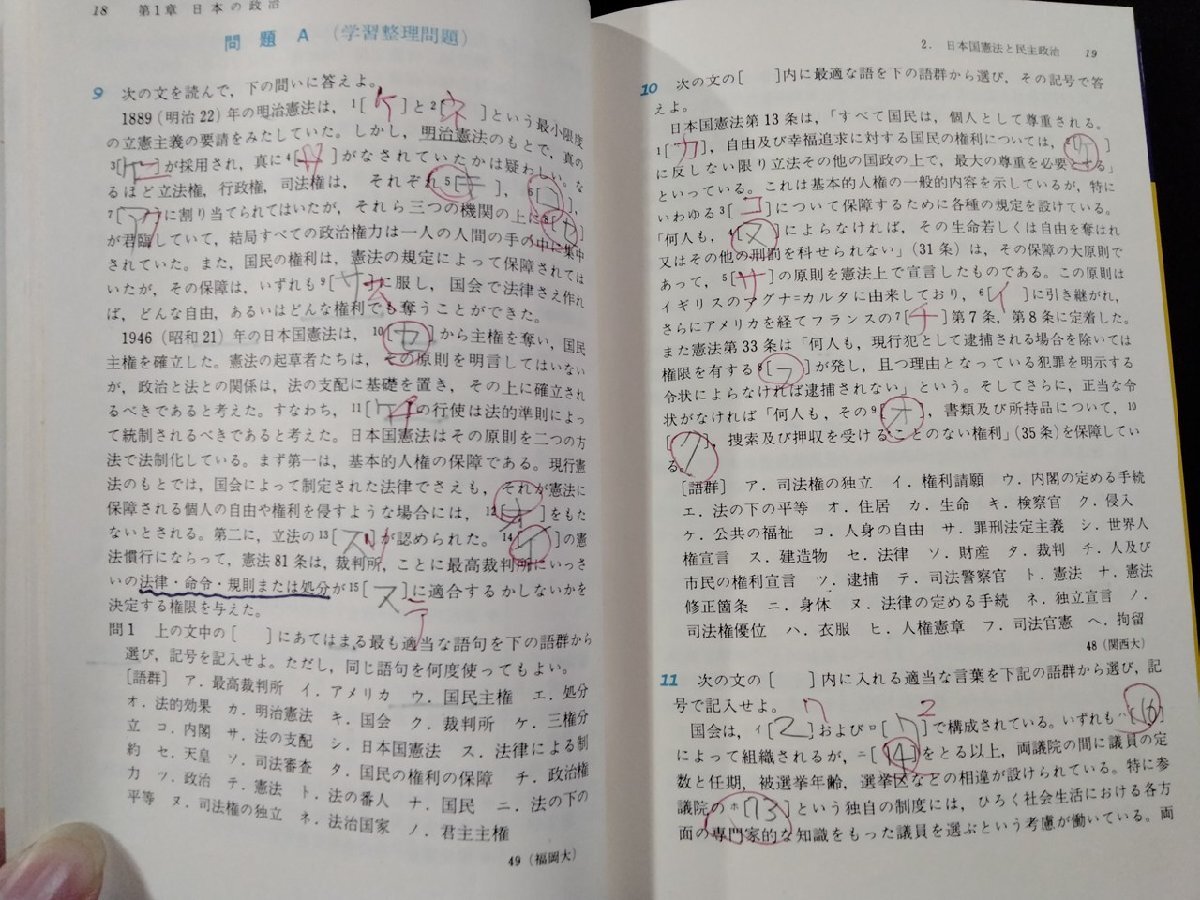 18 第1章 日本の政治
問題A (学習整理問題)
9 次の文を読んで,下の問いに答えよ。
1889(明治22)年の明治憲法は, 1[ケ]と2[ネ]という最小限度
の立憲主義の要請をみたしていた。しかし,明治憲法のもとで,真の
3[ ]が採用され,真に4[サ]がなされていたかは疑わしい。な
るほど立法権,行政権,司法権は,それぞれ5[キ], 6[コ],
7[ ]に割り当てられてはいたが,それら三つの機関の上に8[ ]
が君臨していて,結局すべての政治権力は一人の人間の手の中に集中
されていた。また,国民の権利は,憲法の規定によって保障されては
いたが,その保障は,いずれも9[ ]に服し,国会で法律さえ作れ
ば,どんな自由,あるいはどんな権利でも奪うことができた。
1946(昭和21)年の日本国憲法は, 10[セ]から主権を奪い,国民
主権を確立した。憲法の起草者たちは,その原則を明言してはいない
が,政治と法との関係は,法の支配に基礎を置き,その上に確立され
るべきであると考えた。すなわち, 11[チ]の行使は法的準則によっ
て統制されるべきであると考えた。日本国憲法はその原則を二つの方
法で法制化している。まず第一は,基本的人権の保障である。現行憲
法のもとでは,国会によって制定された法律でさえも,それが憲法に
保障される個人の自由や権利を侵すような場合には, 12[オ]をもた
ないとされる。第二に,立法の13[ ]が認められた。 14[イ]の憲
法慣行にならって,憲法81条は,裁判所,ことに最高裁判所にいっさ
いの法律・命令・規則または処分が15[ス]に適合するかしないかを
テ
決定する権限を与えた。
問1 上の文中の[ ]にあてはまる最も適当な語句を下の語群から
選び,記号を記入せよ。ただし,同じ語句を何度使ってもよい。
[語群] ア.最高裁判所 イ.アメリカ ウ.国民主権 エ.処分
オ.法的効果 カ.明治憲法 キ.国会 ク.裁判所 ケ.三権分
立 コ.内閣 サ.法の支配 シ.日本国憲法 ス.法律による制
約 セ.天皇 ソ.司法審査 タ.国民の権利の保障 チ.政治権
力 ツ.政治 テ.憲法 ト.法の番人 ナ.国民 ニ.法の下の
平等 ヌ.司法権の独立 ネ.法治国家 ノ.君主主権
49(福岡大)
2. 日本国憲法と民主政治 19
10 次の文の[ ]内に最適な語を下の語群から選び,その記号で答
えよ。
日本国憲法第13条は,「すべて国民は,個人として尊重される。
1[カ],自由及び幸福追求に対する国民の権利については, 2[ケ]
に反しない限り立法その他の国政の上で,最大の尊重を必要とする」
といっている。これは基本的人権の一般的内容を示しているが,特に
いわゆる3[コ]について保障するために各種の規定を設けている。
「何人も, 4[ヌ]によらなければ,その生命若しくは自由を奪はれ
又はその他の刑罰を科せられない」(31条)は,その保障の大原則で
あって, 5[サ]の原則を憲法上で宣言したものである。この原則は
イギリスのマグナ=カルタに由来しており, 6[イ]に引き継がれ,
さらにアメリカを経てフランスの7[チ]第7条,第8条に定着した。
また憲法第33条は「何人も,現行犯として逮捕される場合を除いては
権限を有する8[フ]が発し,且つ理由となっている犯罪を明示する
令状によらなければ逮捕されない」という。そしてさらに,正当な令
状がなければ「何人も,その9[オ],書類及び所持品について, 10
[ク],捜索及び押収を受けることのない権利」(35条)を保障してい
る。
[語群] ア.司法権の独立 イ.権利請願 ウ.内閣の定める手続
エ.法の下の平等 オ.住居 カ.生命 キ.検察官 ク.侵入
ケ.公共の福祉 コ.人身の自由 サ.罪刑法定主義 シ.世界人
権宣言 ス.建造物 セ.法律 ソ.財産 タ.裁判 チ.人及び
市民の権利宣言 ツ.逮捕 テ.司法警察官 ト.憲法 ナ.憲法
修正箇条 ニ.身体 ヌ.法律の定める手続 ネ.独立宣言 ノ.
司法権優位 ハ.衣服 ヒ.人権憲章 フ.司法官憲 ヘ.拘留
48(関西大)
11 次の文の[ ]内に入れる適当な言葉を下記の語群から選び,記
号で記入せよ。
7 2
国会は,イ[2]およびロ[7]で構成されている。いずれもハ[16]
によって組織されるが,ニ[14]をとる以上,両議院の間に議員の定
数と任期,被選挙年齢,選挙区などの相違が設けられている。特に参
議院のホ[13]という独自の制度には,ひろく社会生活における各方
面の専門家的な知識をもった議員を選ぶという考慮が働いている。両